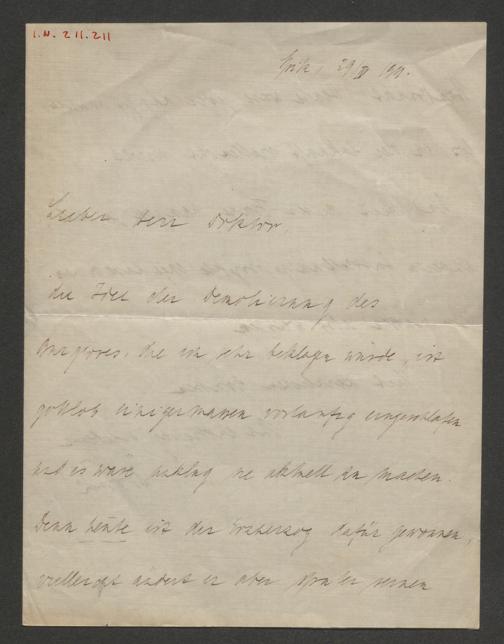 I.N. 211.211
29/IV 1911.
Lieber Herr Doktor,
die Idee der Demolierung des
Burgtores, die ich sehr beklagen würde, ist
gottlob einigermassen vorläufig eingeschlafen
und es wäre unklug sie aktuell zu machen.
Denn heute ist der Erzherzog dafür gewonnen,
vielleicht ändert er aber später seinen